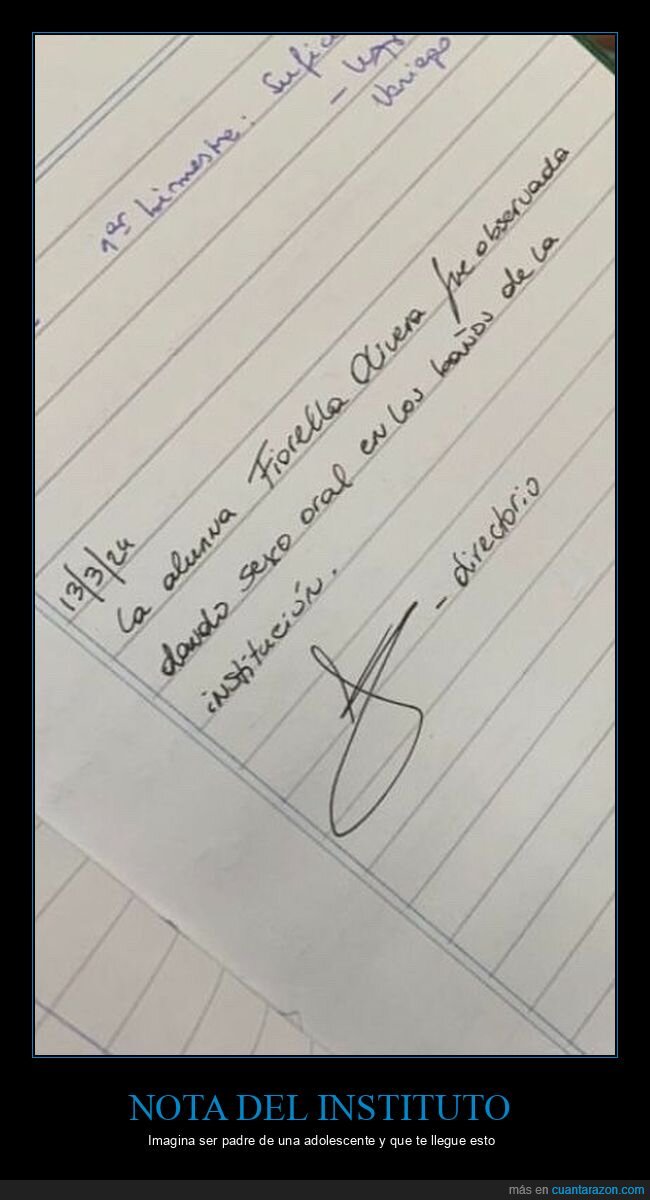 1er bimestre: Sufic
13/3/24
La alumna Fiorella Olivera fue observada
dando sexo oral en los baños de la
institución.
- directorio
NOTA DEL INSTITUTO
Imagina ser padre de una adolescente y que te llegue esto
más en cuantarazon.com